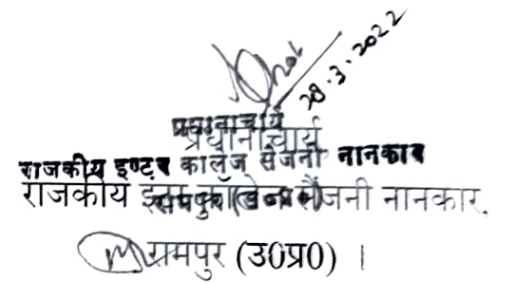 28.3.2022
प्रधानाचार्य
प्रधानाचार्य
राजकीय इण्टर कालेज सैंजनी नानकार
राजकीय इन्टर कॉलेज सैंजनी नानकार,
रामपुर (उ0प्र0)
रामपुर (उ0प्र0) ।